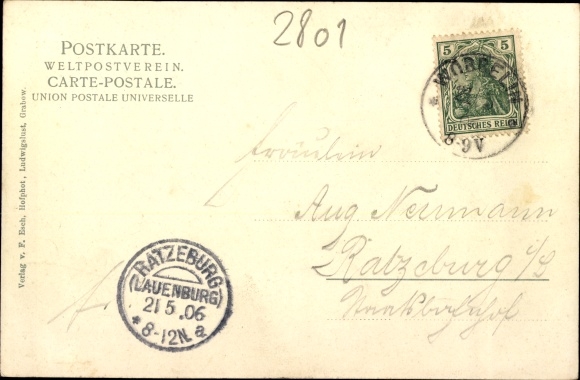 2801
POSTKARTE.
WELTPOSTVEREIN.
CARTE-POSTALE.
UNION POSTALE UNIVERSELLE
5 5
DEUTSCHES REICH
8-9V
Verlag v. F. Esch, Hofphot., Ludwigslust, Grabow.
Fräulein
Aug Neumann
Ratzeburg i/L
RATZEBURG
(LAUENBURG)
21 5.06
* 8-12N. a